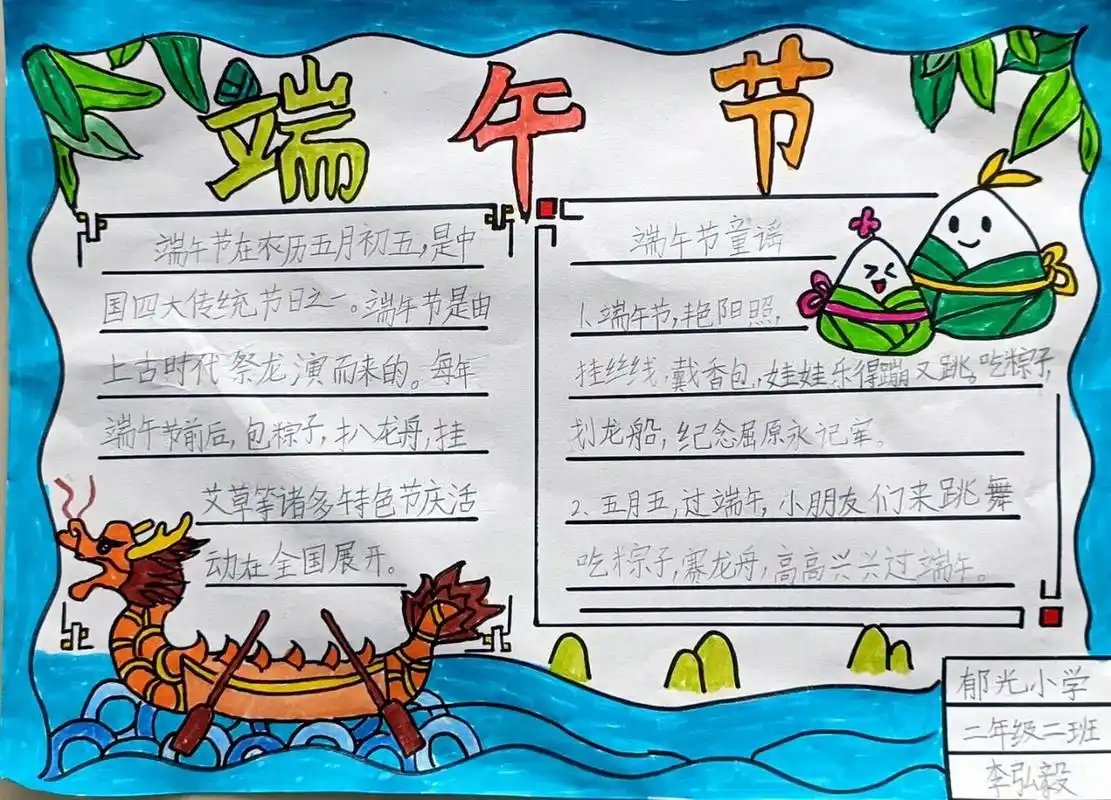 端午节
端午节在农历五月初五,是中
国四大传统节日之一。端午节是由
上古时代祭龙演而来的。每年
端午节前后,包粽子,扒龙舟,挂
艾草等诸多特色节庆活
动在全国展开。
端午节童谣
1、端午节,艳阳照,
挂丝线,戴香包,娃娃乐得蹦又跳。吃粽子,
划龙船,纪念屈原永记牢。
2、五月五,过端午,小朋友们来跳舞
吃粽子,赛龙舟,高高兴兴过端午。
郁光小学
二年级二班
李弘毅